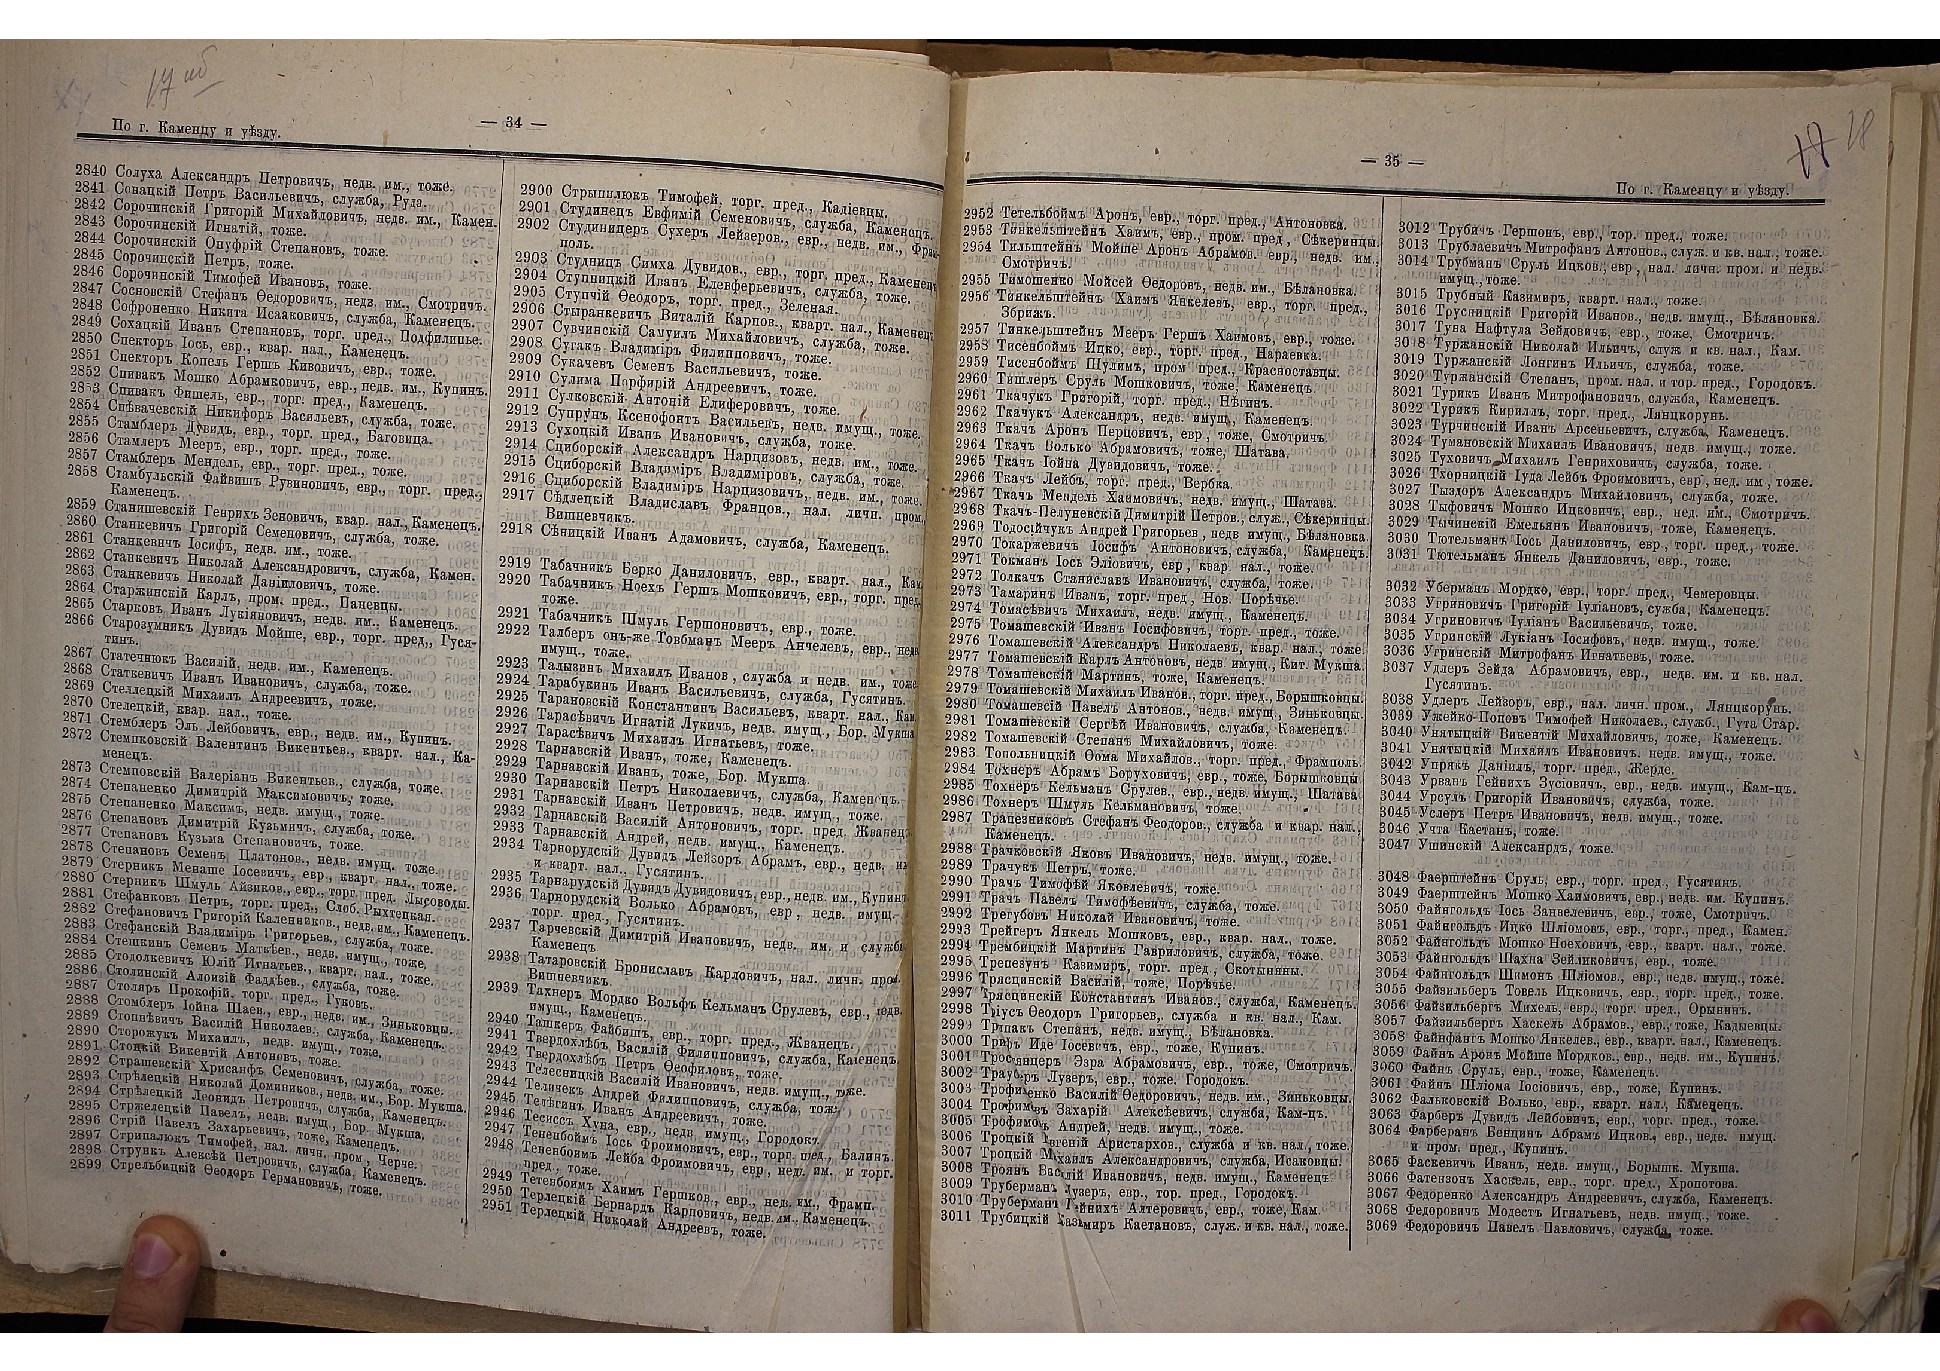 17 об
По г. Каменцу и уѣзду.
— 34 —
2840 Солуха Александръ Петровичъ, недв. им., тоже.
2841 Совацкій Петръ Васильевичъ, служба, Руда.
2842 Сорочинскій Григорій Михайловичъ, недв. им., Камен.
2843 Сорочинскій Игнатій, тоже.
2844 Сорочинскій Онуфрій Степановъ, тоже.
2845 Сорочинскій Петръ, тоже.
2846 Сорочинскій Тимофей Ивановъ, тоже.
2847 Сосновскій Стефанъ Ѳедоровичъ, недв. им., Смотричъ.
2848 Софроненко Никита Исааковичъ, служба, Каменецъ.
2849 Сохацкій Иванъ Степановъ, торг. пред., Подфилипье.
2850 Спекторъ Іось, евр., квар. нал., Каменецъ.
2851 Спекторъ Копель Гершъ Кивовичъ, евр., тоже.
2852 Спивакъ Мошко Абрамковичъ, евр., недв. им., Купинъ.
2853 Спивакъ Фишель, евр., торг. пред., Каменецъ.
2854 Спѣвачевскій Никифоръ Васильевъ, служба, тоже.
2855 Стамблеръ Дувидъ, евр., торг. пред., Баговица.
2856 Стамлеръ Мееръ, евр., торг. пред., тоже.
2857 Стамблеръ Мендель, евр., торг. пред., тоже.
2858 Стамбульскій Файвишъ Рувиновичъ, евр., торг. пред.,
Каменецъ.
2859 Станишевскій Генрихъ Зеновичъ, квар. нал., Каменецъ.
2860 Станкевичъ Григорій Семеновичъ, служба, тоже.
2861 Станкевичъ Іосифъ, недв. им., тоже.
2862 Станкевичъ Николай Александровичъ, служба, Камен.
2863 Станкевичъ Николай Даніиловичъ, тоже.
2864 Старжинскій Карлъ, пром. пред., Паневцы.
2865 Старковъ Иванъ Лукіяновичъ, недв. им., Каменецъ.
2866 Старозумникъ Дувидъ Мойше, евр., торг. пред., Гуся-
тинъ.
2867 Статечнюкъ Василій, недв. им., Каменецъ.
2868 Статкевичъ Иванъ Ивановичъ, служба, тоже.
2869 Стеллецкій Михаилъ Андреевичъ, тоже.
2870 Стелецкій, квар. нал., тоже.
2871 Стемблеръ Эль Лейбовичъ, евр., недв. им., Купинъ.
2872 Стемпковскій Валентинъ Викентьев., кварт. нал., Ка-
менецъ.
2873 Стемповскій Валеріанъ Викентьев., служба, тоже.
2874 Степаненко Димитрій Максимовичъ, тоже.
2875 Степаненко Максимъ, недв. имущ., тоже.
2876 Степановъ Димитрій Кузьмичъ, служба, тоже.
2877 Степановъ Кузьма Степановичъ, тоже.
2878 Степановъ Семенъ Платонов., недв. имущ. тоже.
2879 Стерникъ Менаше Іосевичъ, евр., кварт. нал., тоже.
2880 Стерникъ Шмуль Айзиков., евр., торг. пред. Лысоводы.
2881 Стефанковъ Петръ, торг. пред., Слоб. Рыхтецкая.
2882 Стефановичъ Григорій Каленников., недв. им., Каменецъ.
2883 Стефанскій Владиміръ Григорьев., служба, тоже.
2884 Стешкинъ Семенъ Маткѣев., недв. имущ., тоже,
2885 Стодолкевичъ Юлій Игнатьев., кварт. нал., тоже.
2886 Столинскій Алоизій Фаддѣев., служба, тоже.
2887 Столяръ Прокофій, торг. пред., Гуковъ.
2888 Стомблеръ Іойна Шаев., евр., недв. им., Зиньковцы.
2889 Стопнѣвичъ Василій Николаев., служба, Каменецъ.
2890 Сторожукъ Михаилъ, недв. имущ., тоже.
2891 Стоцкій Викентій Антоновъ, тоже.
2892 Страшевскій Хрисанфъ Семеновичъ, служба, тоже.
2893 Стрѣлецкій Николай Домиников., недв. им., Бор. Мукша.
2894 Стрѣлецкій Леонидъ Петровичъ, служба, Каменецъ.
2895 Стржелецкій Павелъ, недв. имущ., Бор. Мукша,
2896 Стрій Павелъ Захарьевичъ, тоже, Каменецъ.
2897 Стрипалюкъ Тимофей, нал. личн. пром., Черче.
2898 Стрункъ Алексѣй Петровичъ, служба, Каменецъ.
2899 Стрельбицкій Ѳеодоръ Германовичъ, тоже.
2900 Стрыпилюкъ Тимофей, торг. пред., Кадіевцы.
2901 Студинецъ Евфимій Семеновичъ, служба, Каменецъ.
2902 Студиницеръ Сухеръ Лейзеров., евр., недв. им., Фрам-
поль.
2903 Студницъ Симха Дувидов., евр., торг. пред., Каменецъ
2904 Ступницкій Иванъ Еленферьевичъ, служба, тоже.
2905 Ступчій Ѳеодоръ, торг. пред., Зеленая.
2906 Стыранкевичъ Виталій Карпов., кварт. нал., Каменецъ
2907 Сувчинскій Самуилъ Михайловичъ, служба, тоже.
2908 Сугакъ Владиміръ Филипповичъ, тоже.
2909 Сукачевъ Семенъ Васильевичъ, тоже.
2910 Сулима Порфирій Андреевичъ, тоже.
2911 Сулковскій Антоній Елиферовичъ, тоже.
2912 Супрунъ Ксенофонтъ Васильевъ, недв. имущ., тоже.
2913 Сухоцкій Иванъ Ивановичъ, служба, тоже.
2914 Сциборскій Александръ Нарцизовъ, недв. им., тоже.
2915 Сциборскій Владиміръ Владиміровъ, служба, тоже.
2916 Сциборскій Владиміръ Нарцизовичъ, недв. им., тоже.
2917 Сѣдлецкій Владиславъ Францов., нал. личн. пром,
Вишневчикъ.
2918 Сѣницкій Иванъ Адамовичъ, служба, Каменецъ.
2919 Табачникъ Берко Даниловичъ, евр., кварт. нал., Кам
2920 Табачникъ Ноехъ Гершъ Мошковичъ, евр., торг. пред,
тоже.
2921 Табачникъ Шмуль Гершоновичъ, евр., тоже.
2922 Талберъ онъ-же Товбманъ Мееръ Анчелевъ, евр., недв
имущ., тоже.
2923 Талызинъ Михаилъ Иванов, служба и недв. им., тоже
2924 Тарабукинъ Иванъ Васильевичъ, служба, Гусятинъ.
2925 Тарановскій Константинъ Васильевъ, кварт. нал., Кам
2926 Тарасѣвичъ Игнатій Лукичъ, недв. имущ., Бор. Мукша
2927 Тарасѣвичъ Михаилъ Игнатьевъ, тоже.
2928 Тарнавскій Иванъ, тоже, Каменецъ.
2929 Тарнавскій Иванъ, тоже, Бор. Мукша.
2930 Тарнавскій Петръ Николаевичъ, служба, Каменецъ.
2931 Тарнавскій Иванъ Петровичъ, недв. имущ., тоже.
2932 Тарнавскій Василій Антоновичъ, торг. пред. Жванецъ
2933 Тарнавскій Андрей, недв. имущ., Каменецъ.
2934 Тарнорудскій Дувидъ Лейзоръ Абрамъ, евр., недв. им
и кварт. нал., Гусятинъ.
2935 Тарнарудскій Дувидъ Дувидовичъ, евр., недв. им., Купинъ
2936 Тарнорудскій Волько Абрамовъ, евр, недв. имущ.
торг. пред., Гусятинъ.
2937 Тарчевскій Димитрій Ивановичъ, недв. им. и служба
Каменецъ
2938 Татаровскій Брониславъ Кардовичъ, нал. личн. пром
Вишневчикъ.
2939 Тахнеръ Мордко Вольфъ Кельманъ Срулевъ, евр., недв.
имущ., Каменецъ.
2940 Ташкеръ Файбишъ, евр., торг. пред., Жванецъ.
2941 Твердохлѣбъ Василій Филипповичъ, служба, Каменецъ
2942 Твердохлѣбъ Петръ Ѳеофиловъ, тоже.
2943 Телесницкій Василій Ивановичъ, недв. имущ., тоже.
2944 Теличекъ Андрей Филипповичъ, служба, тоже.
2945 Телѣгинъ Иванъ Андреевичъ, тоже.
2946 Тесиссъ Хуна, евр., недв. имущ., Городокъ.
2947 Тененбоймъ Іось Фроимовичъ, евр., торг. пред., Балинъ.
2948 Тененбоймъ Лейба Фроимовичъ, евр, недв. им., и торг.
пред., тоже.
2949 Тетенбоимъ Хаимъ Гершков., евр., недв. им., Фрамп.
2950 Терлецкій Бернардъ Карповичъ, недв. им., Каменецъ.
2951 Терлецкій Николай Андреевъ, тоже.
17 18
— 35 —
По г. Каменцу и уѣзду.
2952 Тетельбоймъ Аронъ, евр., торг. пред., Антоновка.
2953 Тинкельштейнъ Хаимъ, евр., пром. пред, Сѣкеринцы.
2954 Тильштейнъ Мойше Аронъ Абрамов. евр., недв. им.,
Смотричъ.
2955 Тимошенко Мойсей Ѳедоровъ, недв. им., Бѣлановка.
2956 Тинкельштейнъ Хаимъ Янкелев., евр., торг. пред.,
Збрижъ.
2957 Тинкельштейнъ Мееръ Гершъ Хаимовъ, евр., тоже.
2958 Тисенбоймъ Ицко, евр., торг. пред., Нараевка.
2959 Тисенбоймъ Шулим., пром пред., Красноставцы.
2960 Тишлеръ Сруль Мошковичъ, тоже, Каменецъ.
2961 Ткачукъ Григорій, торг. пред., Нѣгинъ.
2962 Ткачукъ Александръ, недв. имущ., Каменецъ.
2963 Ткачъ Аронъ Перцовичъ, евр, тоже, Смотричъ.
2964 Ткачъ Волько Абрамовичъ, тоже, Шатава.
2965 Ткачъ Іойна Дувидовичъ, тоже.
2966 Ткачъ Лейбъ, торг. пред., Вербка.
2967 Ткачъ Мендель Хаимовичъ, недв. имущ., Шатава.
2968 Ткачъ-Пелуневскій Димитрій Петров., служ., Сѣкеринцы.
2969 Тодосійчукъ Андрей Григорьев, недв имущ., Бѣлановка.
2970 Токаржевичъ Іосифъ Антоновичъ, служба, Каменецъ.
2971 Токманъ Іось Эліовичъ, евр, квар. нал., тоже.
2972 Толкачъ Станиславъ Ивановичъ, служба, тоже.
2973 Тамаринъ Иванъ, торг. пред, Нов. Порѣчье.
2974 Томасѣвичъ Михаилъ, недв. имущ., Каменецъ.
2975 Томашевскій Иванъ Іосифовичъ, торг. пред., тоже.
2976 Томашевскій Александръ Николаевъ, квар. нал., тоже
2977 Томашевскій Карлъ Антоновъ, недв. имущ., Кит. Мукша.
2978 Томашевскій Мартинъ, тоже, Каменецъ.
2979 Томашевскій Михаилъ Иванов., торг. пред., Борышковцы.
2980 Томашевсій Павелъ Антонов., недв. имущ., Зиньковцы.
2981 Томашевскій Сергѣй Ивановичъ, служба, Каменецъ.
2982 Томашевскій Степанъ Михайловичъ, тоже.
2983 Топольницкій Ѳома Михайлов., торг. пред., Фрамполь.
2984 Тохнеръ Абрамъ Боруховичъ, евр., тоже, Борышковцы
2985 Тохнеръ Кельманъ Срулев., евр., недв. имущ., Шатава.
2986 Тохнеръ Шмуль Кельмановичъ, тоже.
2987 Трапезниковъ Стефанъ Феодоров., служба и квар. нал.,
Каменецъ.
2988 Трачковскій Яковъ Ивановичъ, недв. имущ., тоже.
2989 Трачукъ Петръ, тоже.
2990 Трачъ Тимофѣй Яковлевичъ, тоже.
2991 Трачъ Павелъ Тимофѣевичъ, служба, тоже.
2992 Трегубовъ Николай Ивановичъ, тоже.
2993 Трейгеръ Янкель Мошков., евр., квар. нал., тоже.
2994 Трембицкій Мартинъ Гавриловичъ, служба, тоже.
2995 Трепезунъ Казимиръ, торг. пред, Скотыняны.
2996 Тряспинскій Василій, тоже, Порѣчье.
2997 Трясцинскій Константинъ Иванов., служба, Каменецъ.
2998 Тріусъ Ѳеодоръ Григорьев., служба и кв. нал., Кам.
2999 Трипакъ Степанъ, недв. имущ., Бѣлановка.
3000 Трифъ Иде Іосевичъ, евр., тоже, Купинъ.
3001 Тростанцеръ Эзра Абрамовичъ, евр., тоже, Смотричъ.
3002 Трауберъ Лузеръ, евр., тоже. Городокъ.
3003 Трофименко Василій Ѳедоровичъ, недв. им., Зиньковцы.
3004 Трофимовъ Захарій Алексѣевичъ, служба, Кам-цъ.
3005 Трофимовъ Андрей, недв. имущ., тоже.
3006 Троцкій Евгеній Аристархов., служба и кв. нал., тоже.
3007 Троцкій Михаилъ Александровичъ, служба, Исаковцы.
3008 Троянъ Василій Ивановичъ, недв. имущ., Каменецъ.
3009 Труберманъ Лузеръ, евр., тор. пред., Городокъ.
3010 Труберманъ Гейнихъ Алтеровичъ, евр., тоже, Кам.
3011 Трубицкій Казимиръ Каетановъ, служ. и кв. нал., тоже.
3012 Трубичъ Гершонъ, евр., тор. пред., тоже.
3013 Трублаевичъ Митрофанъ Антонов., служ. и кв. нал., тоже.
3014 Трубманъ Сруль Ицков., евр, нал. личн. пром. и недв.
имущ., тоже.
3015 Трубный Казимиръ, кварт. нал., тоже.
3016 Трусницкій Григорій Иванов., недв. имущ., Бѣлановка.
3017 Тува Нафтула Зейдовичъ, евр., тоже, Смотричъ.
3018 Туржанскій Николай Ильичъ, служ и кв. нал., Кам.
3019 Туржанскій Лонгинъ Ильичъ, служба, тоже.
3020 Туржанскій Степанъ, пром. нал. и тор. пред., Городокъ.
3021 Турикъ Иванъ Митрофановичъ, служба, Каменецъ.
3022 Турикъ Кириллъ, торг. пред., Лянцкорунь.
3023 Турчинскій Иванъ Арсеньевичъ, служба, Каменецъ.
3024 Тумановскій Михаилъ Ивановичъ, недв. имущ., тоже.
3025 Туховичъ Михаилъ Генриховичъ, служба, тоже.
3026 Тхорницкій Іуда Лейбъ Фроимовичъ, евр, нед. им, тоже.
3027 Тыздоръ Александръ Михайловичъ, служба, тоже.
3028 Тыфовичъ Мошко Ицковичъ, евр., нед. им., Смотричъ.
3029 Тычинскій Емельянъ Ивановичъ, тоже, Каменецъ.
3030 Тютельманъ Іось Даниловичъ, евр., торг. пред., тоже.
3031 Тютельманъ Янкель Даниловичъ, евр., тоже.
3032 Уберманъ Мордко, евр., торг. пред., Чемеровцы.
3033 Угриновичъ Григорій Іуліановъ, сужба, Каменецъ.
3034 Угриновичъ Іуліанъ Васильевичъ, тоже.
3035 Угринскій Лукіанъ Іосифовъ, недв. имущ., тоже.
3036 Угринскій Митрофанъ Игнатьевъ, тоже.
3037 Удлеръ Зейда Абрамовичъ, евр., недв. им. и кв. нал.
Гусятинъ.
3038 Удлеръ Лейзоръ, евр., нал. личн. пром., Лянцкорунь.
3039 Ужейко-Поповъ Тимофей Николаев., служб., Гута Стар.
3040 Унятыцкій Викентій Михайловичъ, тоже, Каменецъ.
3041 Унятыцкій Михаилъ Ивановичъ. недв. имущ., тоже.
3042 Упрякъ Даніилъ, торг. пред., Жерде.
3043 Урванъ Гейнихъ Зусіовичъ, евр., недв. имущ., Кам-цъ.
3044 Урсулъ Григорій Ивановичъ, служба, тоже.
3045 Услеръ Петръ Ивановичъ, недв. имущ., тоже.
3046 Учта Каетанъ, тоже.
3047 Ушинскій Александръ, тоже.
3048 Фаерштейнъ Сруль, евр., торг. пред., Гусятинъ.
3049 Фаерштейнъ Мошко Хаимовичъ, евр., недв. им. Купинъ.
3050 Файнгольдъ Іось Занвелевичъ, евр., тоже, Смотричъ.
3051 Файнгольдъ Ицко Шліомовъ, евр., торг., пред., Камен.
3052 Файнгольдъ Мошко Ноеховичъ, евр., кварт. нал., тоже.
3053 Файнгольдъ Шахна Зейликовичъ, евр., тоже.
3054 Файнгольдъ Шимонъ Шліомов., евр., недв. имущ., тоже.
3055 Файзильберъ Товель Ицковичъ, евр., торг. пред., тоже.
3056 Файзильбергъ Михель, евр., торг. пред., Орынинъ.
3057 Файзильбергъ Хаскель Абрамов., евр., тоже, Кадыевцы.
3058 Файнфангъ Мошко Янкелев., евр., кварт. нал., Каменецъ.
3059 Файнъ Аронъ Мойше Мордков., евр., недв. им., Купинъ.
3060 Файнъ Сруль, евр., тоже, Каменецъ.
3061 Файнъ Шліома Іосіовичъ, евр., тоже, Купинъ.
3062 Фальковскій Волько, евр., кварт. нал., Каменецъ.
3063 Фарберъ Дувидъ Лейбовичъ, евр., торг. пред., тоже.
3064 Фарберанъ Бенцинъ Абрамъ Ицков., евр., недв. имущ.
и пром. пред., Купинъ.
3065 Фаскевичъ Иванъ, недв. имущ., Борышк. Мукша.
3066 Фатензонъ Хаскель, евр., торг. пред., Хропотова.
3067 Федоренко Александръ Андреевичъ, служба, Каменецъ.
3068 Федоровичъ Модестъ Игнатьевъ, недв. имущ., тоже.
3069 Федоровичъ Павелъ Павловичъ, служба, тоже.